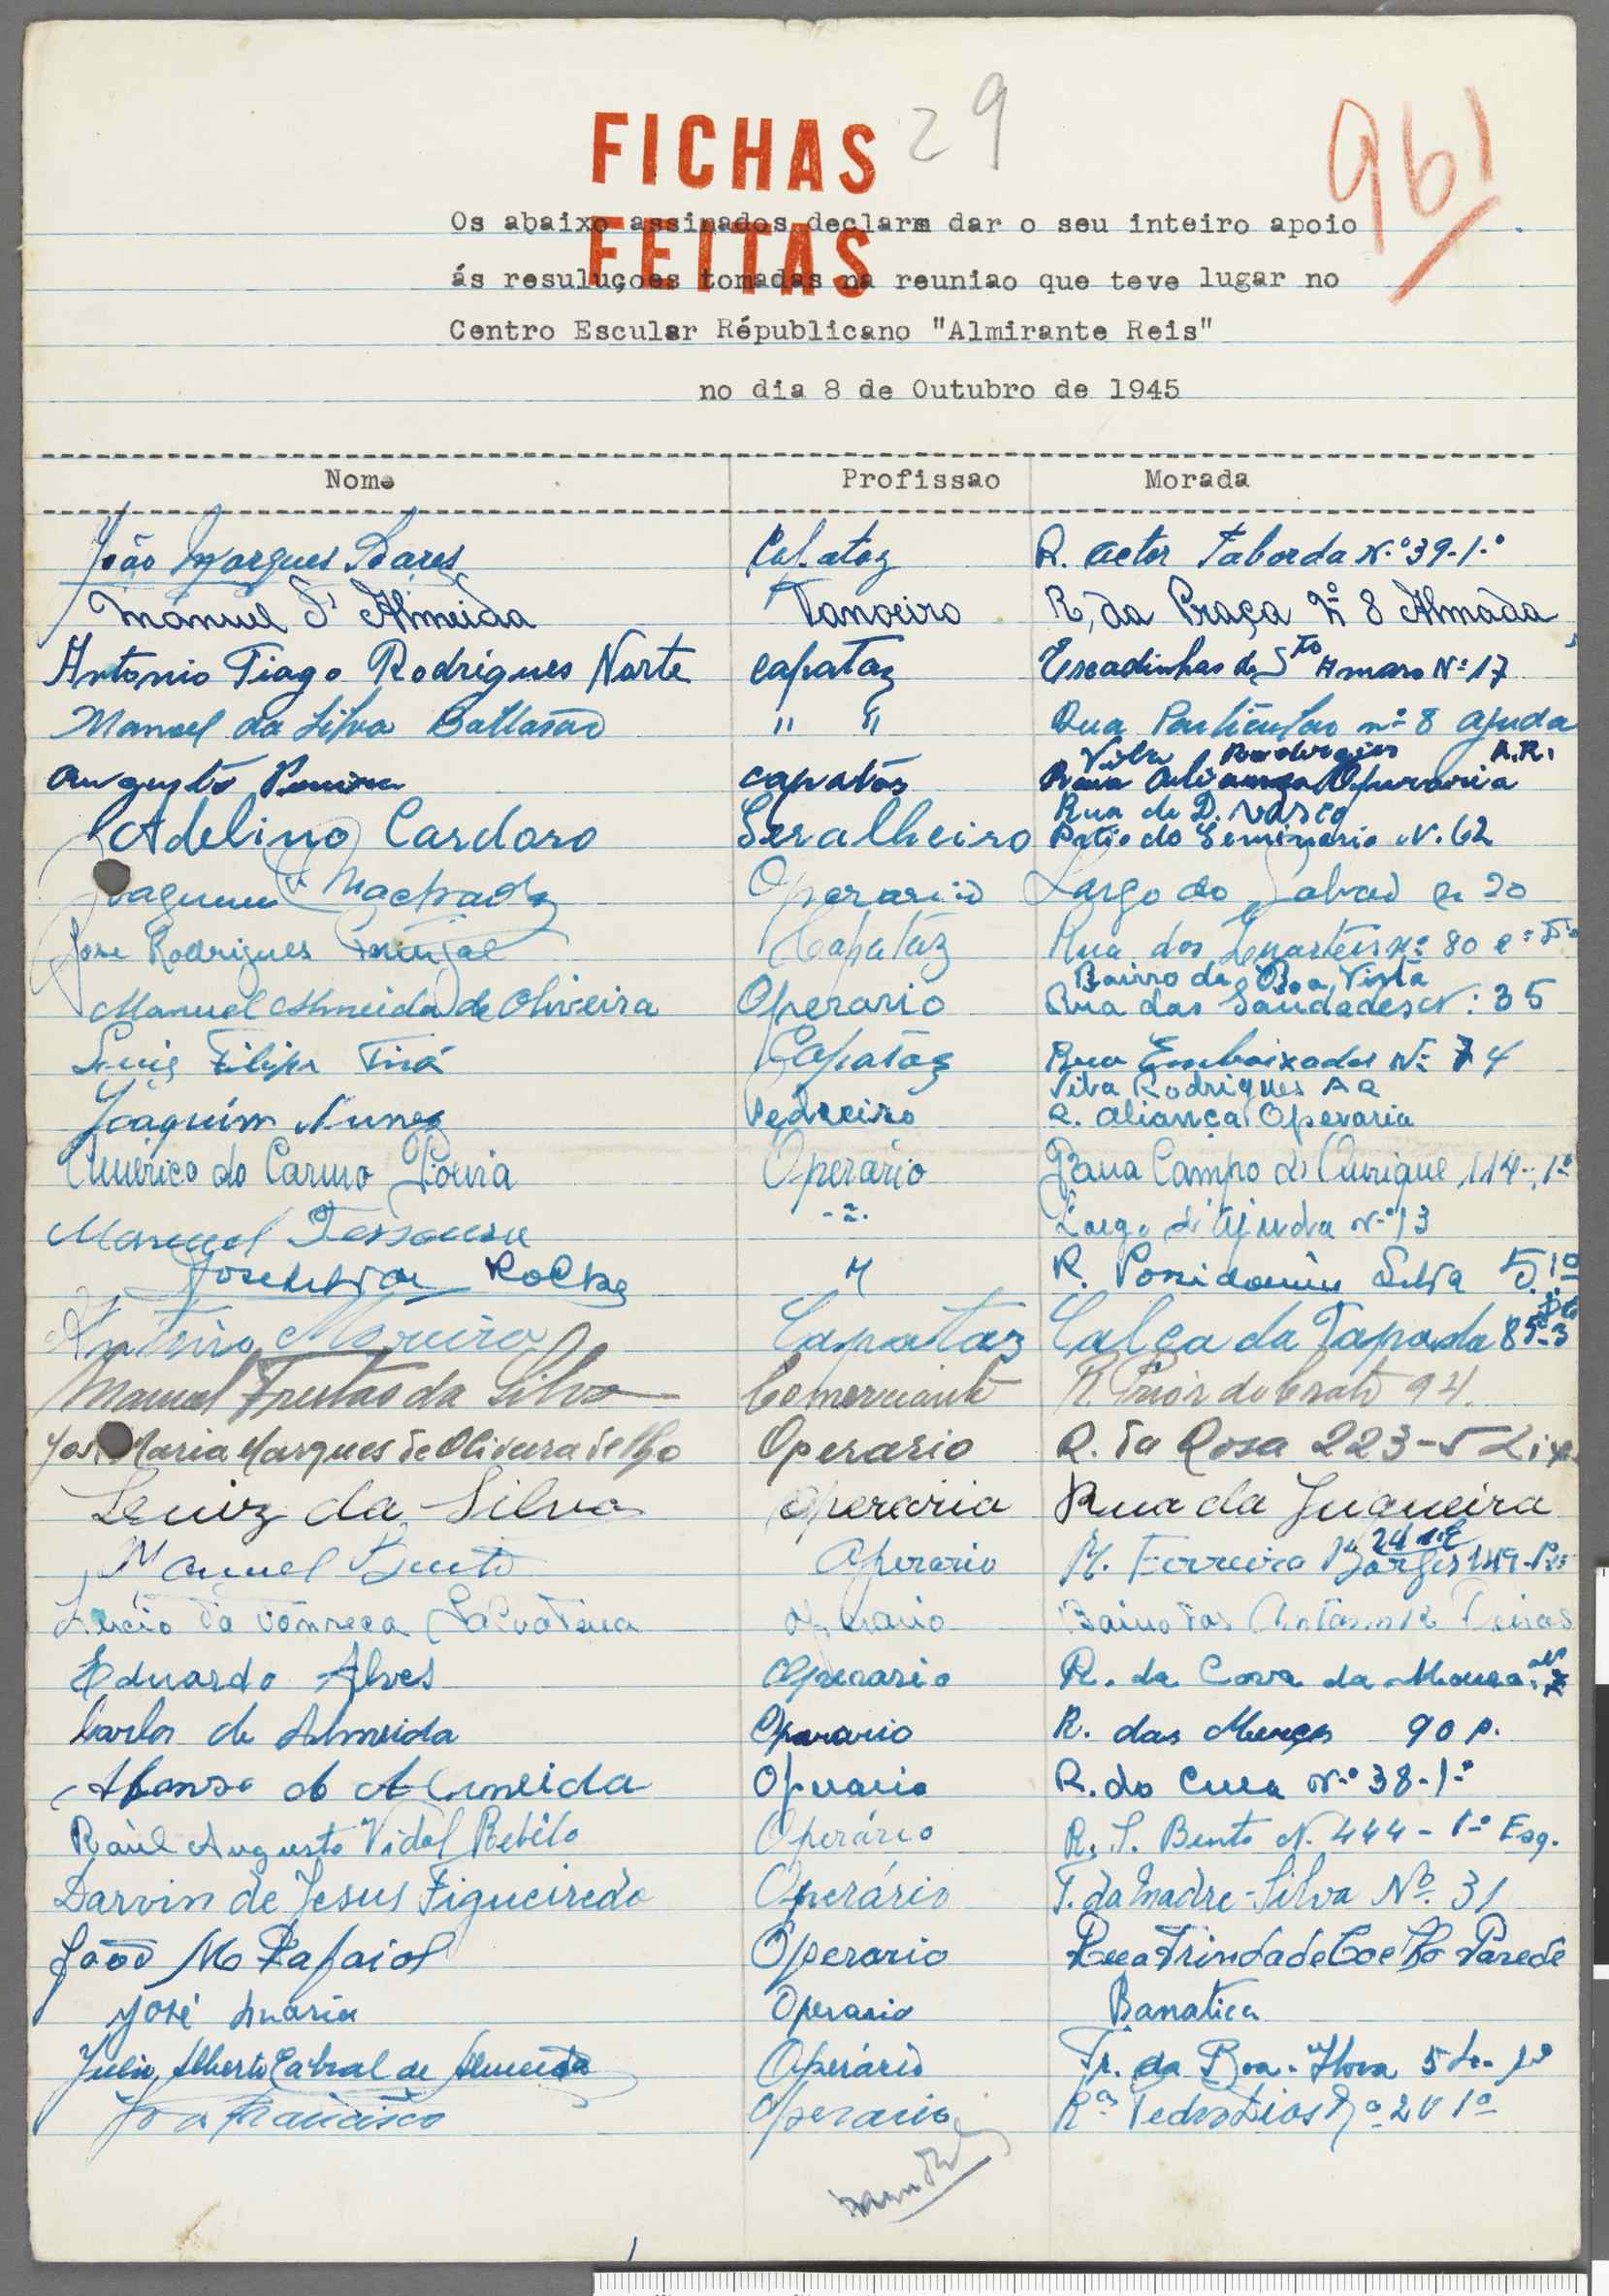 29
961
FICHAS
FEITAS
Os abaixo assinados declarm dar o seu inteiro apoio
ás resuluçoes tomadas na reuniao que teve lugar no
Centro Escular Républicano "Almirante Reis"
no dia 8 de Outubro de 1945
Nome Profissao Morada
João Marques Soares Capataz R. Actor Taborda N.º 39-1.º
Manuel d' Almeida Tanoeiro R, da Praça Nº 8 Almada
Antonio Tiago Rodrigues Norte capataz Escadinhas de Sto Amaro Nº 17
Manoel da Silva Baltasar " " Rua Particular nº 8 Ajuda
Vila Rodrigues A.R.
Augusto capatás Rua Aliança Operaria
Rua de D. Vasco
Adelino Cardoso Seralheiro Patio do Seminario N. 62
Joaquim Machado Operario Largo do 20
Jose Rodrigues Capatáz Rua dos Quarteis nº 80
Bairro da Boa Vista
Manuel Almeida de Oliveira Operario Rua das Saudades N: 35
Luis Filipe Capatáz Rua Embaixador Nº 4
Vila Rodrigues A R
Joaquim Nunes Pedreiro R. Aliança Operaria
Americo do Carmo Operário Campo d' Ourique 114-1º
Manuel Largo d'Ajuda Nº 13
Rocha " R. Possidonio Silva 5.1º
Moreira Capataz Calça da Tapada 85-3
Manuel Freitas da Silva Comerciante R. Prior do Crato 94.
José Maria Marques de Oliveira Operario R. da Rosa 223-5 Lix
Luiz da Silva Operario Rua da Juqueira
Manuel Bento Operario R. Ferreira Borges 149
Lucio da Operario
Eduardo Alves Operario R. da Cova da Moura
Carlos de Almeida Operario R. das Merçes 90 p.
Afonso de Almeida Operario R. do Cura N.º 38-1.º
Raúl Augusto Vidal Rebelo Operário R. S. Bento N. 444 - 1º Esq.
Darvin de Jesus Figueiredo Operário T. da Madre-Silva Nº. 31
João M Rafael Operario Rua Trindade Coelho Parede
José Maria Operario Banatica
Julio Alberto Cabral de Almeida Operário Tr. da Boa-Hora 1º
Francisco Operario Rª Pedro Dias Nº 20 1º